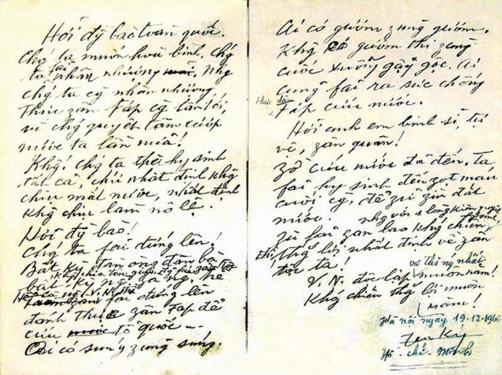 Hỡi đg bào toàn quốc.
Chg ta muốn hoà bình, chg
ta fải nhân nhượng. Nhg
chg ta cg nhân nhượng
thực zân Fáp cg lấn tới,
vì chg quyết tâm cướp
nước ta lần nữa!
Khg! chg ta thà hy sinh
tất cả, chứ nhất định khg
chịu mất nước, nhất định
khg chịu làm nô lệ.
Hỡi đg bào!
Chg ta fải đứng lên!
Bất kỳ đàn ông đàn bà
bất kỳ ng già ng trẻ
fải đứng lên
đánh thực zân Fáp để
cứu tổ quốc -
Ai có súng zùng súng.
Ai có gươm zùng gươm.
Khg có gươm thì zùng
cuốc xuổng gậy gộc. Ai
cũng fải ra sức chống
thực zân Fáp cứu nước.
Hỡi anh em binh sĩ, tự
vệ, zân quân!
Zờ cứu nước đã đến. Ta
fải hy sinh đến zọt máu
cuối cg, để zữ zìn đất
nước.
Zù fải zan lao khg chiến,
thg lợi nhất định về zân
tộc ta!
V.N. độc lập và thg nhất muôn năm!
Khg chiến thg lợi muôn
năm!
Hà nội ngày 19-12-1946
Hồ chí Minh